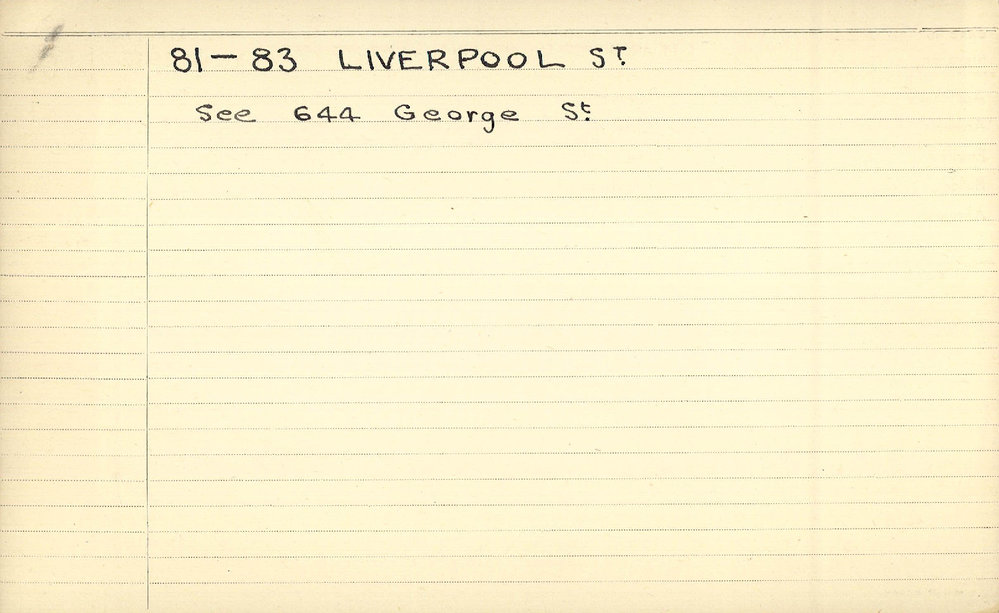 81-83 LIVERPOOL ST.
See 644 George St.